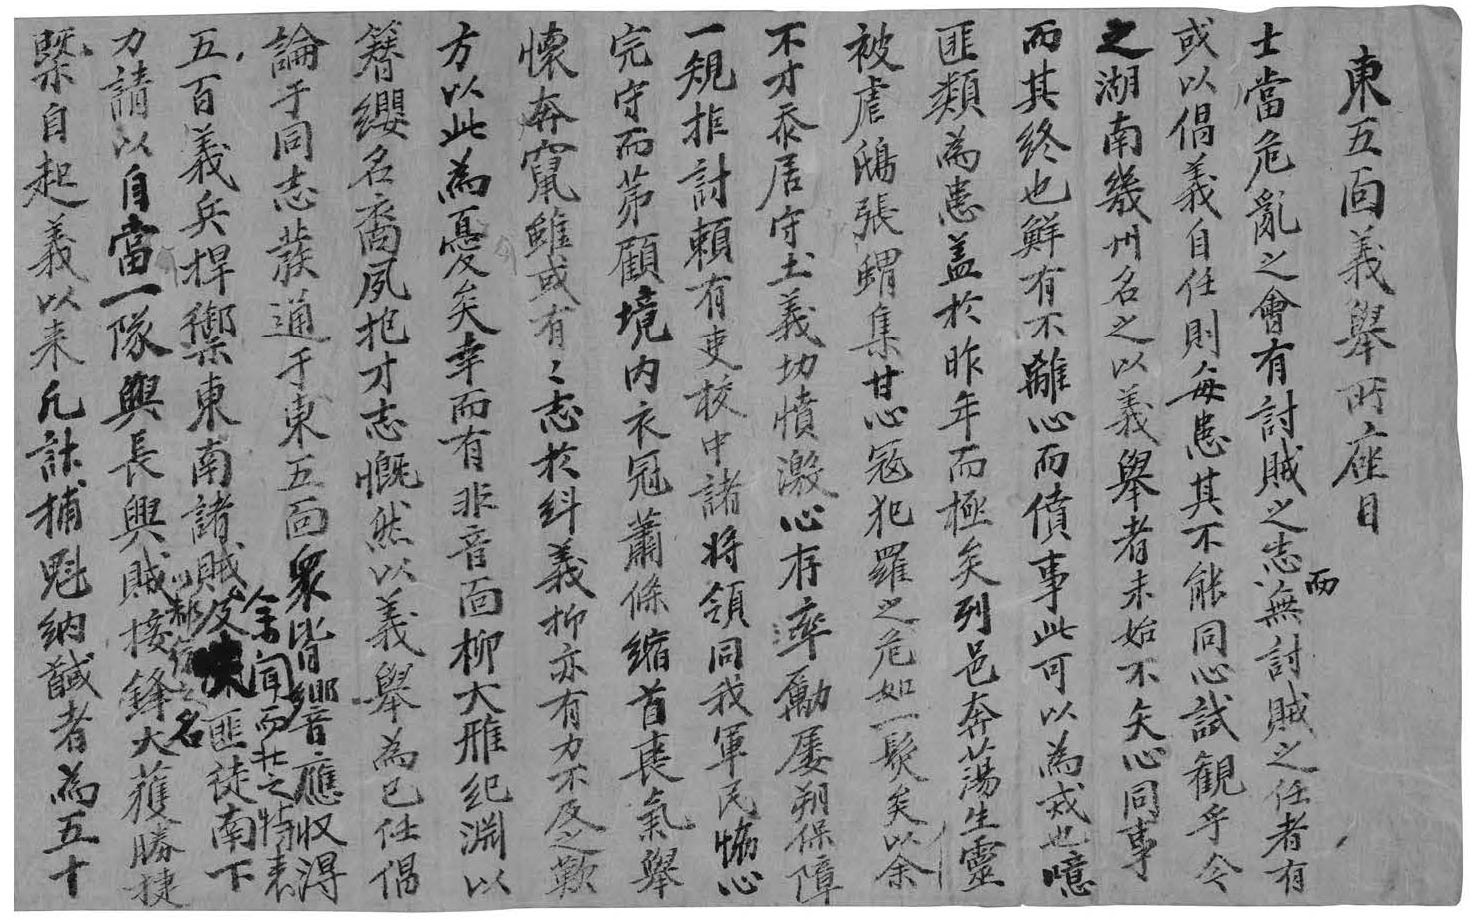 東五面義擧所座目
士當危亂之會有討賊之志而無討賊之任者有
或以倡義自任則每患其不能同心試觀乎今
之湖南幾州名之以義擧者未始不矢心同事
而其終也鮮有不離心而僨事此可以為戒也噫
匪類為患盖於昨年而極矣列邑奔蕩生靈
被虐鴟張蝟集甘心冦犯羅之危如一髮矣以余
不才忝居守土義切憤激心存率勵屡朔保障
一䂓拒討賴有吏校中諸将領同我軍民恊心
完守而苐顧境內衣冠蕭條縮首喪氣擧
懷奔竄雖或有〻志於糾義抑亦有力不及之歎
方以此為憂矣幸而有非音面柳大雅紀淵以
簪纓名裔夙抱才志慨然以義擧為己任倡
論于同志蔟通于東五面衆皆響應收得
五百義兵捍禦東南諸賊余聞而壯之特表
以郷行之名
及匪徒南下
力請以自當一隊與長興賊接鋒大獲勝捷
槩自起義以来凡計捕魁納馘者為五十